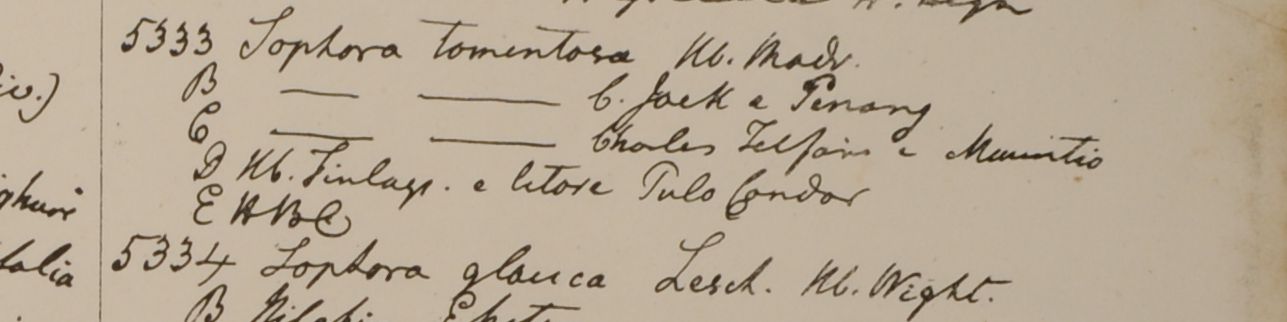 5333 Sophora tomentosa Hb. Madr.
B — — C. Jack e Penang
C — — Charles Telfair e Mauritio
D Hb. Finlays. e litore Pulo Condor
E HBC
5334 Sophora glauca Lesch. Hb. Wight.
B